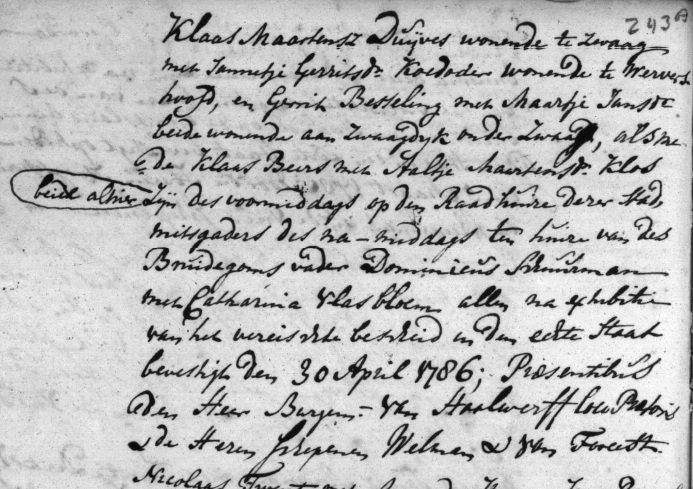 243A
Klaas Maartensz Duijves wonende te Zwaag
met Jannetje Gerritsdr Koedoder wonende te Wervers
hoofd, en Gerrit Besseling met Maartje Jansdr
beide wonende aan Zwaagdyk onder Zwaag, alsme
de Klaas Beers met Aaltje Maertensdr Klos
beide alhier Zijn des voormiddags op den Raadhuize dezer Stad,
mitsgaders des na-middags ten huize van des
Bruidegoms vader Dominicus Schuurman
met Catharina Vlasbloem allen na exhibitie
van het vereischte bescheid in den echte Staat
bevestigt den 30 April 1786; Præsentibus
den Heer Burgem: van loco Prætoris
& de Heren Schepenen Welman & van Foreest
Nicolaas met